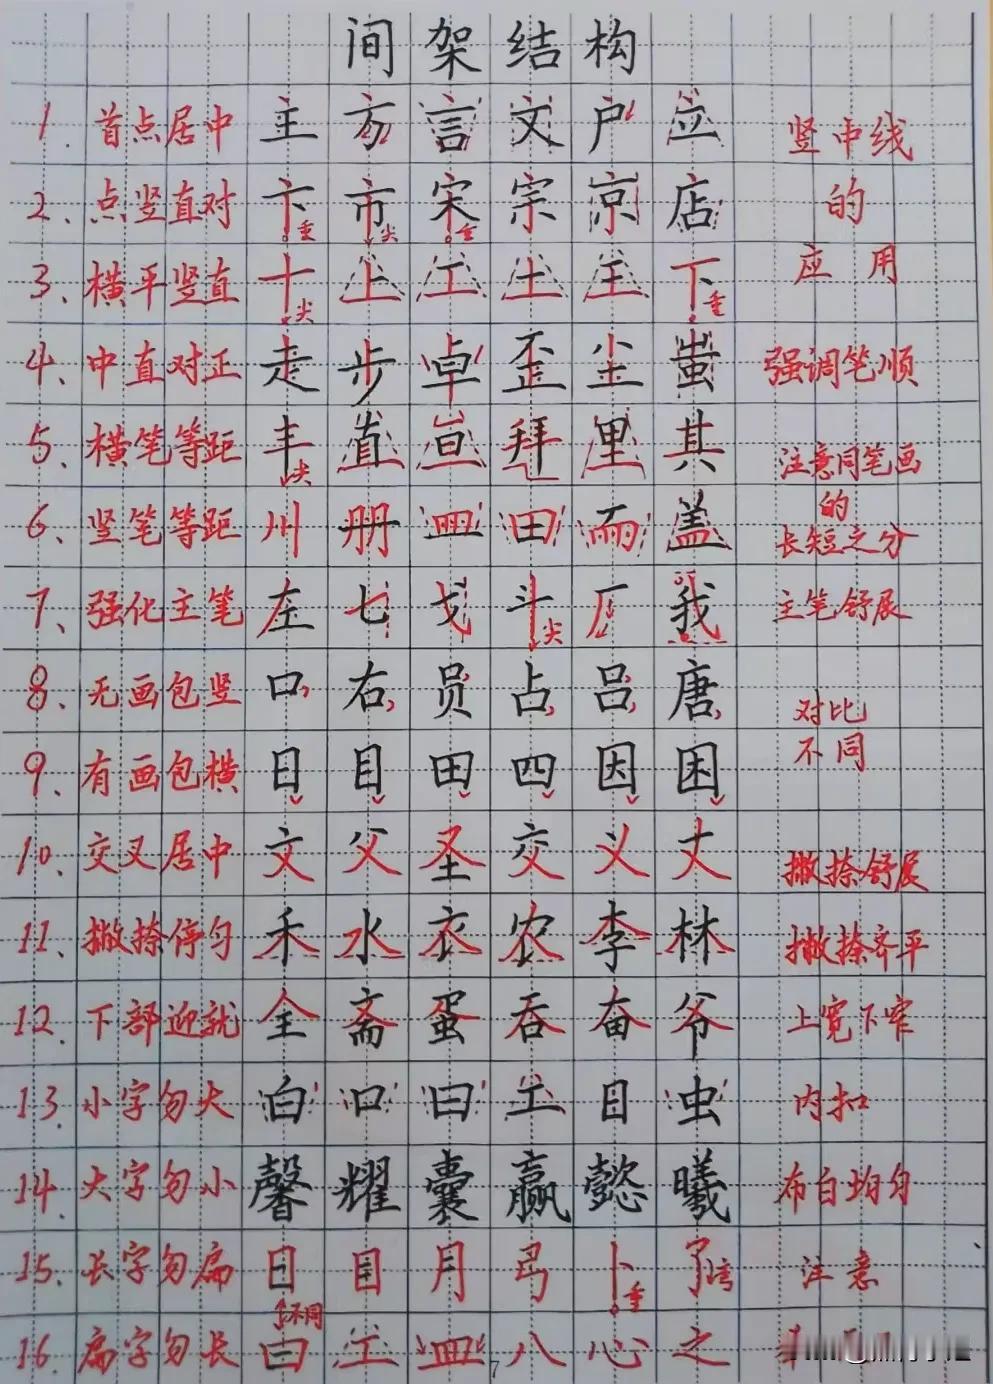 间架结构
1. 首点居中 主方言文户应 竖中线
2. 点竖直对 卞市宋宗京店 的
垂 尖 垂
3. 横平竖直 十上工土主下 应用
尖 垂
4. 中直对正 走步卓歪尘蚩 强调笔顺
5. 横笔等距 丰直亘拜里其 注意同笔画
尖 的
6. 竖笔等距 川册皿田而盖 长短之分
7、 强化主笔 左七戈斗厂我 主笔舒展
尖
8. 无画包竖 口右员占吕唐 对比
9. 有画包横 日目田四因困 不同
10. 交叉居中 文父圣交义丈 撇捺舒展
11. 撇捺停匀 禾水衣农李林 撇捺齐平
12. 下部迎就 全斋蛋吞奋爷 上宽下窄
13. 小字勿大 白口曰工日虫 内扣
14. 大字勿小 馨耀囊赢懿曦 布白均匀
15. 长字勿扁 日目月弓卜了 注意
不同 垂 弯
16. 扁字勿长 曰工皿八心之
7